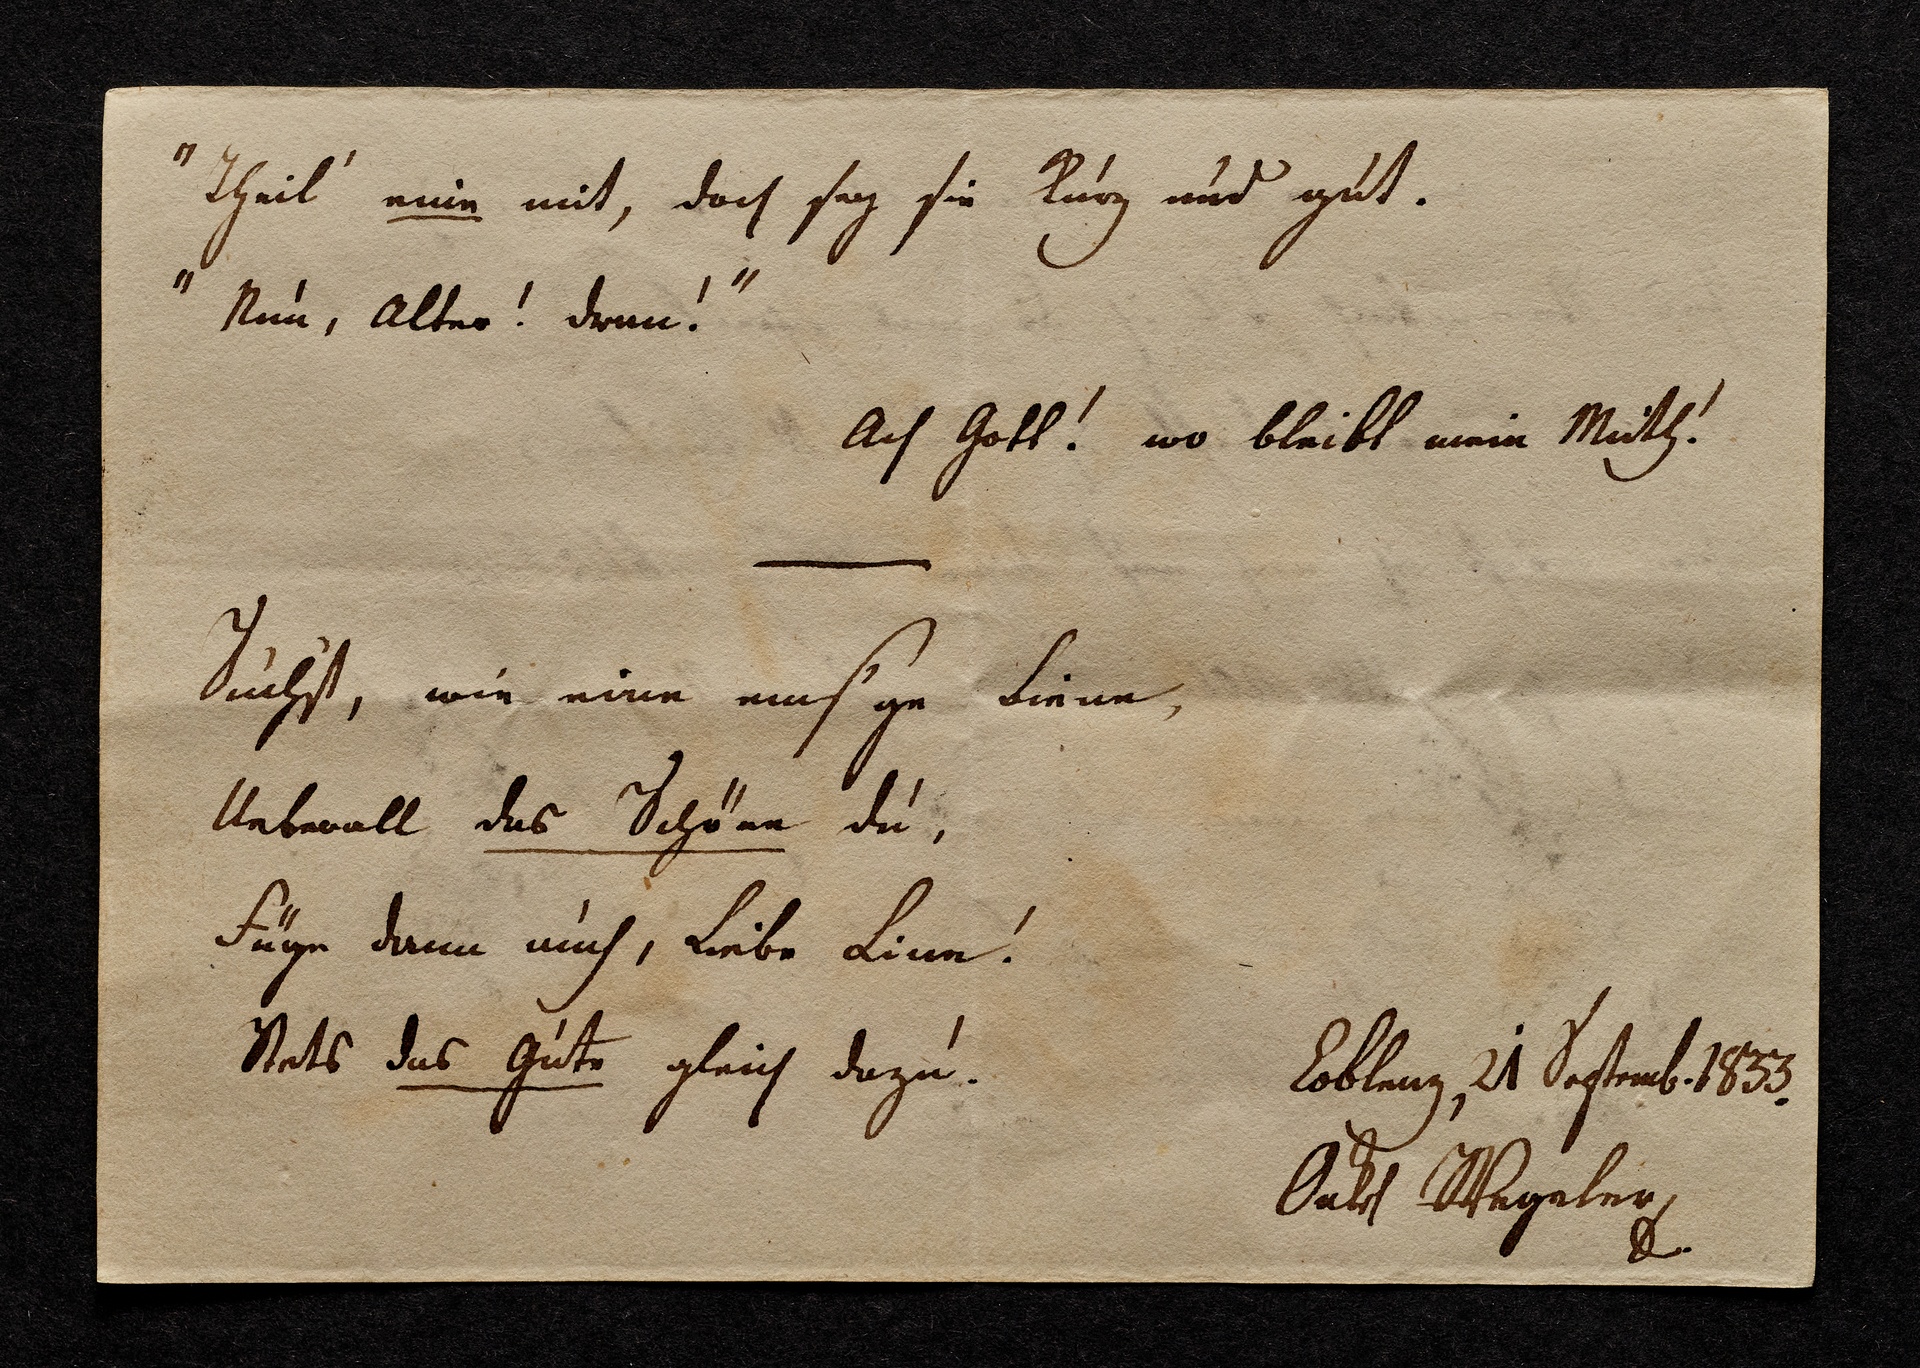 "Theil' eine mit, doch sey sie kurz und gut.
"Nun, Alter! dran!"
Ach Gott! wo bleibt mein Muth!
Suchst, wie eine ems'ge Biene,
Ueberall das Schöne du,
Füge dann auch, Liebe Line!
Stets das Gute gleich dazu.
Coblenz, 21 Septemb. 1833.
Wegeler,